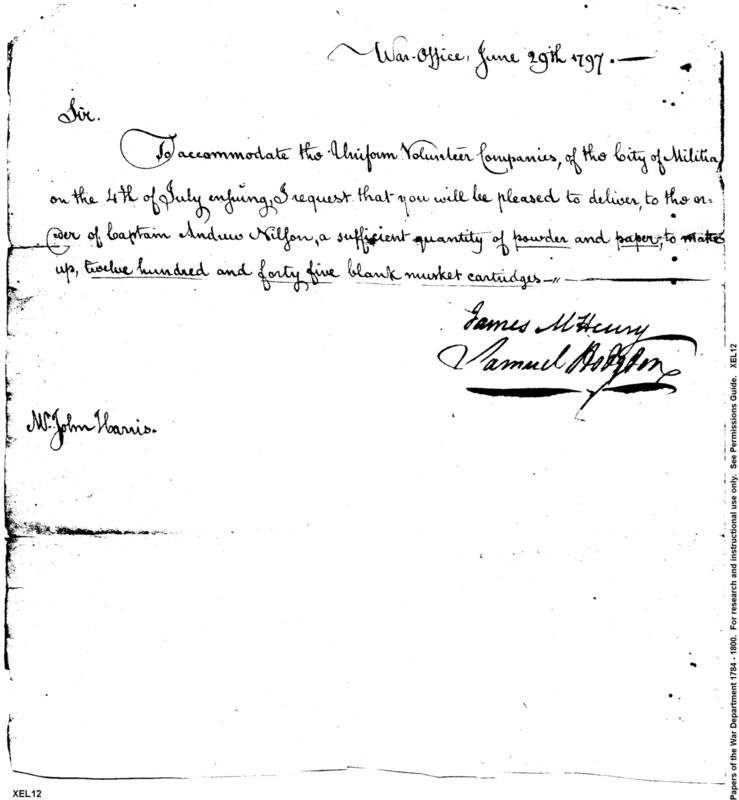 War-Office, June 29th 1797.
Sir.
To accommodate the Uniform Volunteer Companies, of the City of Militia
on the 4th of July ensuing, I request that you will be pleased to deliver, to the or-
der of Captain Andrew Nilson, a sufficient quantity of powder and paper, to make
up, twelve hundred and forty five blank musket cartridges
James McHenry
Samuel Hodgdon
Mr. John Harris.
XEL12
Papers of the War Department 1784 - 1800. For research and instructional use only. See Permissions Guide. XEL12